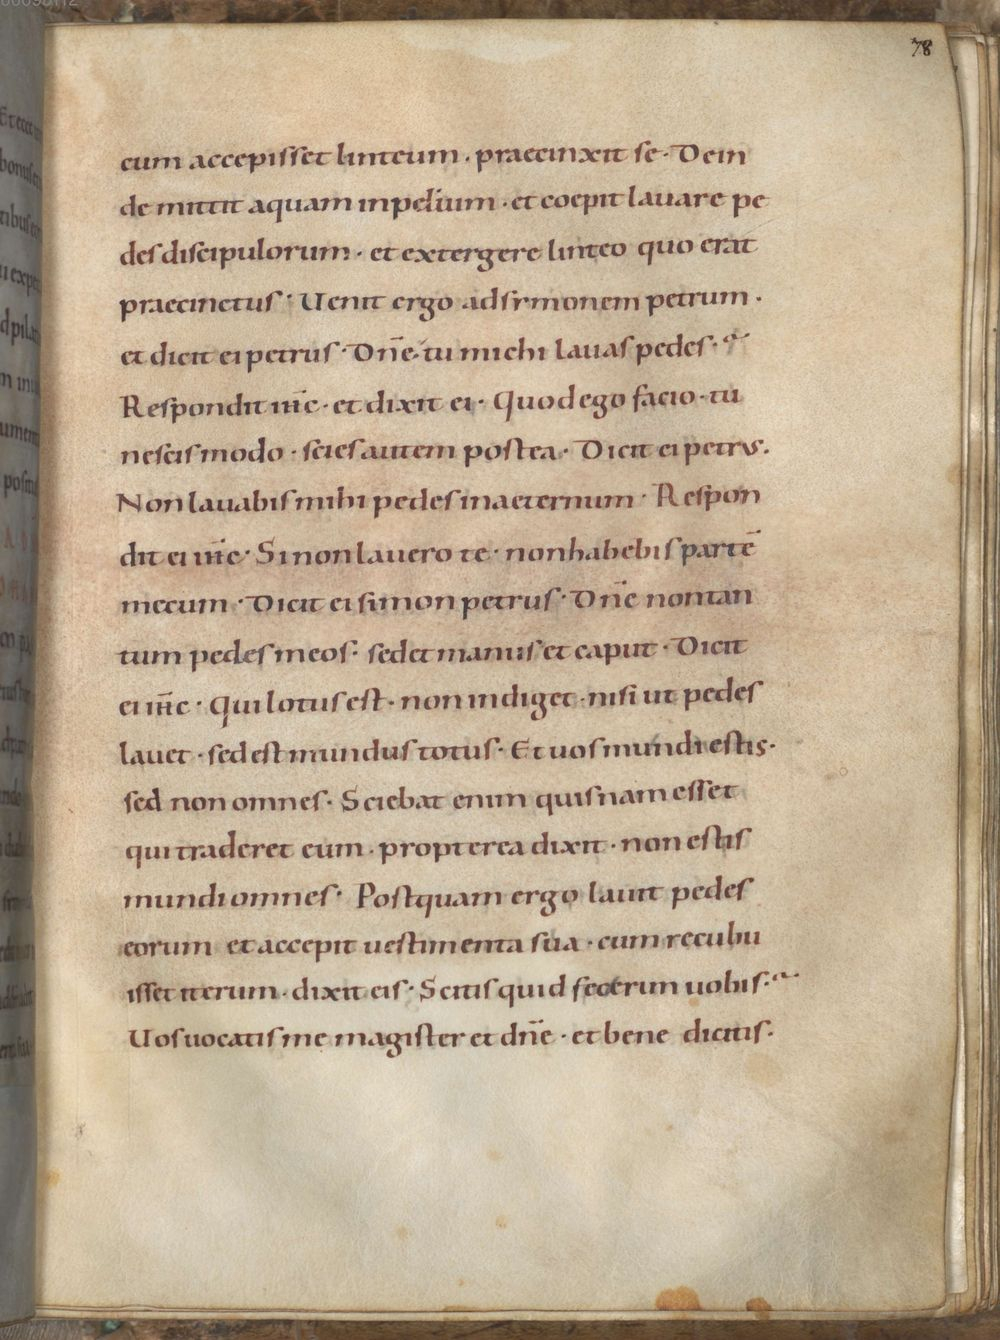 78
cum accepisset linteum · praecinxit se · Dein
de mittit aquam in pelium · et coepit lauare pe
des discipulorum · et extergere linteo quo erat
praecinctus · Uenit ergo ad simonem petrum ·
et dicit ei petrus · Dn̄e · tu michi lauas pedes ·
Respondit iħc · et dixit ei · Quod ego facio · tu
nescis modo · scies autem postea · Dicit ei petrus ·
Non lauabis mihi pedes in aeternum · Respon
dit ei iħc · Si non lauero te · non habebis partē
mecum · Dicit ei simon petrus · Dn̄e non tan
tum pedes meos · sed et manus et caput · Dicit
ei iħc · Qui lotus est · non indiget · nisi ut pedes
lauet · sed est mundus totus · Et uos mundi estis ·
sed non omnes · Sciebat enim quisnam esset
qui traderet eum · propterea dixit · non estis
mundi omnes · Postquam ergo lauit pedes
eorum et accepit uestimenta sua · cum recubu
isset iterum · dixit eis · Scitis quid fecerim uobis ·
Uos uocatis me magister et dn̄e · et bene dicitis ·